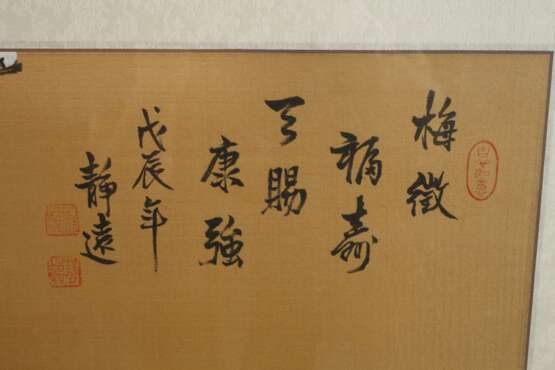 梅徵
福壽
天賜
康強
戊辰年
靜遠